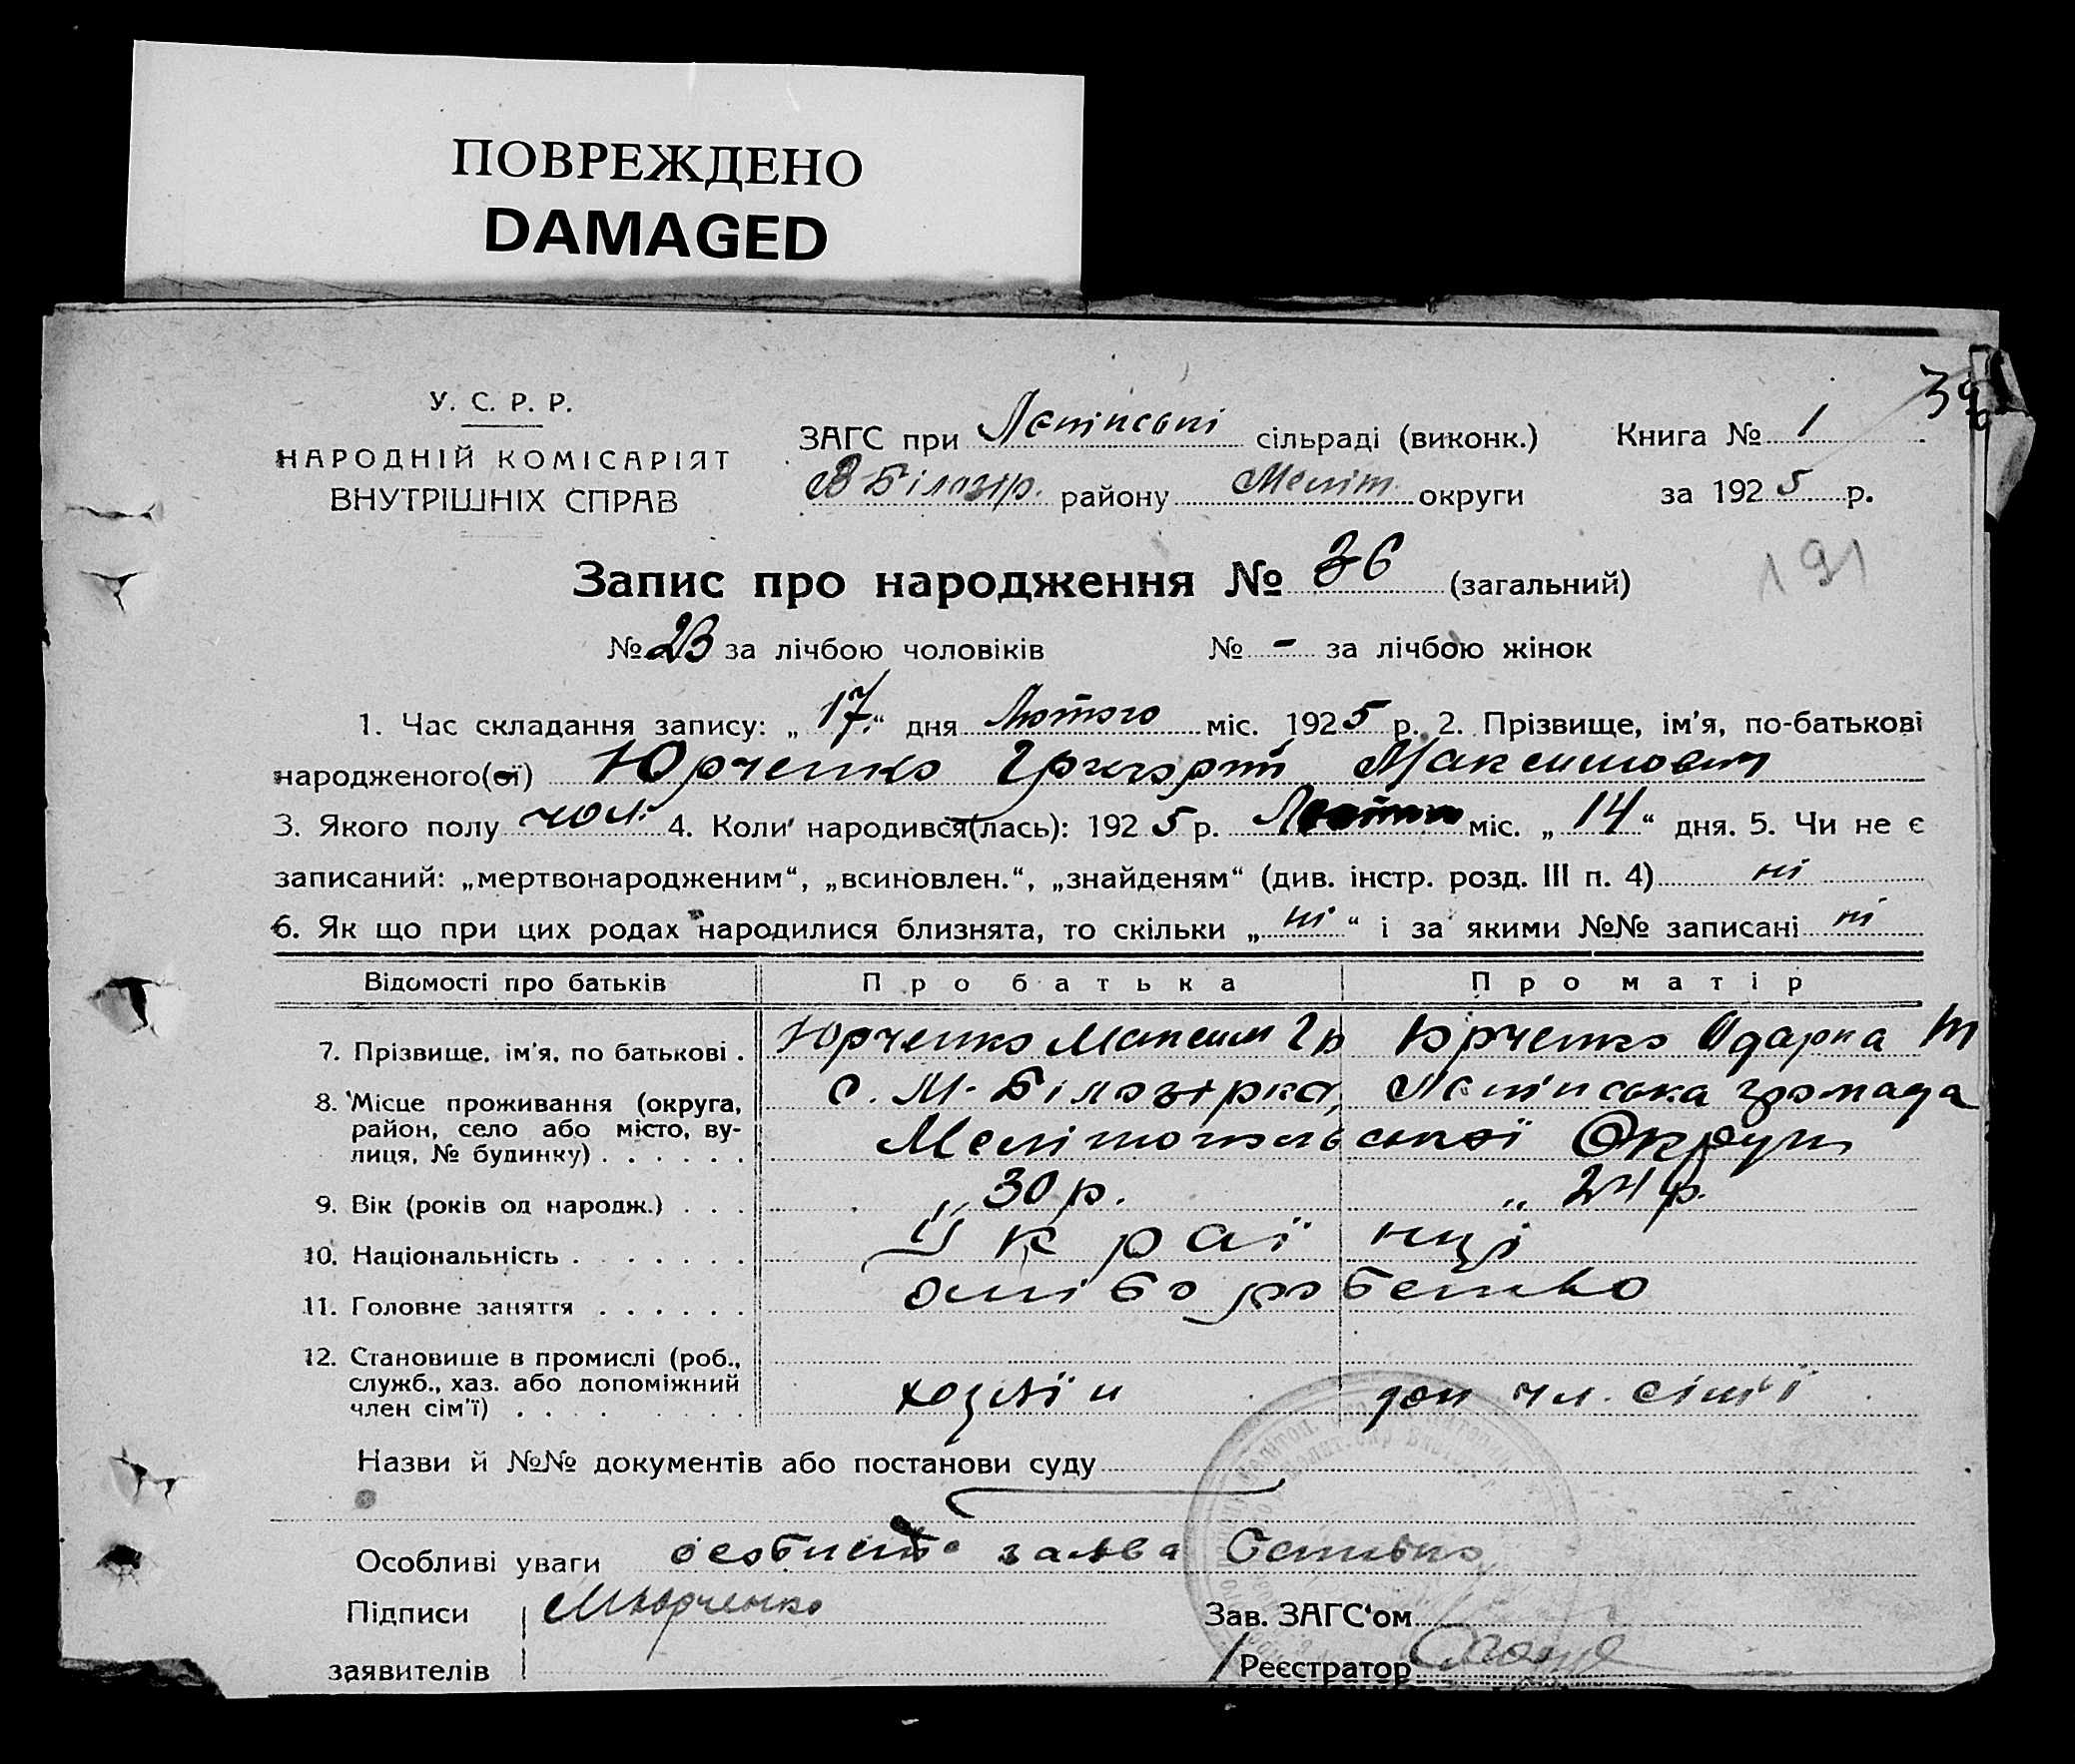 ПОВРЕЖДЕНО
DAMAGED
У. С. Р. Р.
НАРОДНІЙ КОМІСАРІЯТ
ВНУТРІШНІХ СПРАВ
ЗАГС при сільраді (виконк.)
В-Білозір. району Меліт. округи
Книга № 1
за 1925 р.
191
Запис про народження № 36 (загальний)
№ 23 за лічбою чоловіків № - за лічбою жінок
1. Час складання запису: „17“ дня Лютого міс. 1925 р. 2. Прізвище, ім'я, по-батькові
народженого(ої) Юрченко Григорій Максимович
3. Якого полу чол. 4. Коли народився(лась): 1925 р. Лютого міс. „14“ дня. 5. Чи не є
записаний: „мертвонародженим“, „всиновлен.“, „знайденям“ (див. інстр. розд. III п. 4) ні
6. Як що при цих родах народилися близнята, то скільки „ні“ і за якими №№ записані ні
Відомості про батьків Про батька Про матір
7. Прізвище, ім'я, по батькові . Юрченко Максим Гр Юрченко Одарка Т
8. Місце проживання (округа, с. М-Білозірка, громада
район, село або місто, ву- Мелітопольської Округи
лиця, № будинку) . . . . . .
9. Вік (років од народж.) . . . „ 30 р. „ 24 р.
10. Національність . . . . . . . Українці
11. Головне заняття . . . . . . хліборобство
12. Становище в промислі (роб.,
служб., хаз. або допоміжний хазяїн доп чл. сім'ї
член сім'ї) . . . . . .
Назви й №№ документів або постанови суду
Особливі уваги особиста заява Батька
Підписи МЮрченко Зав. ЗАГС'ом
заявителів Реєстратор